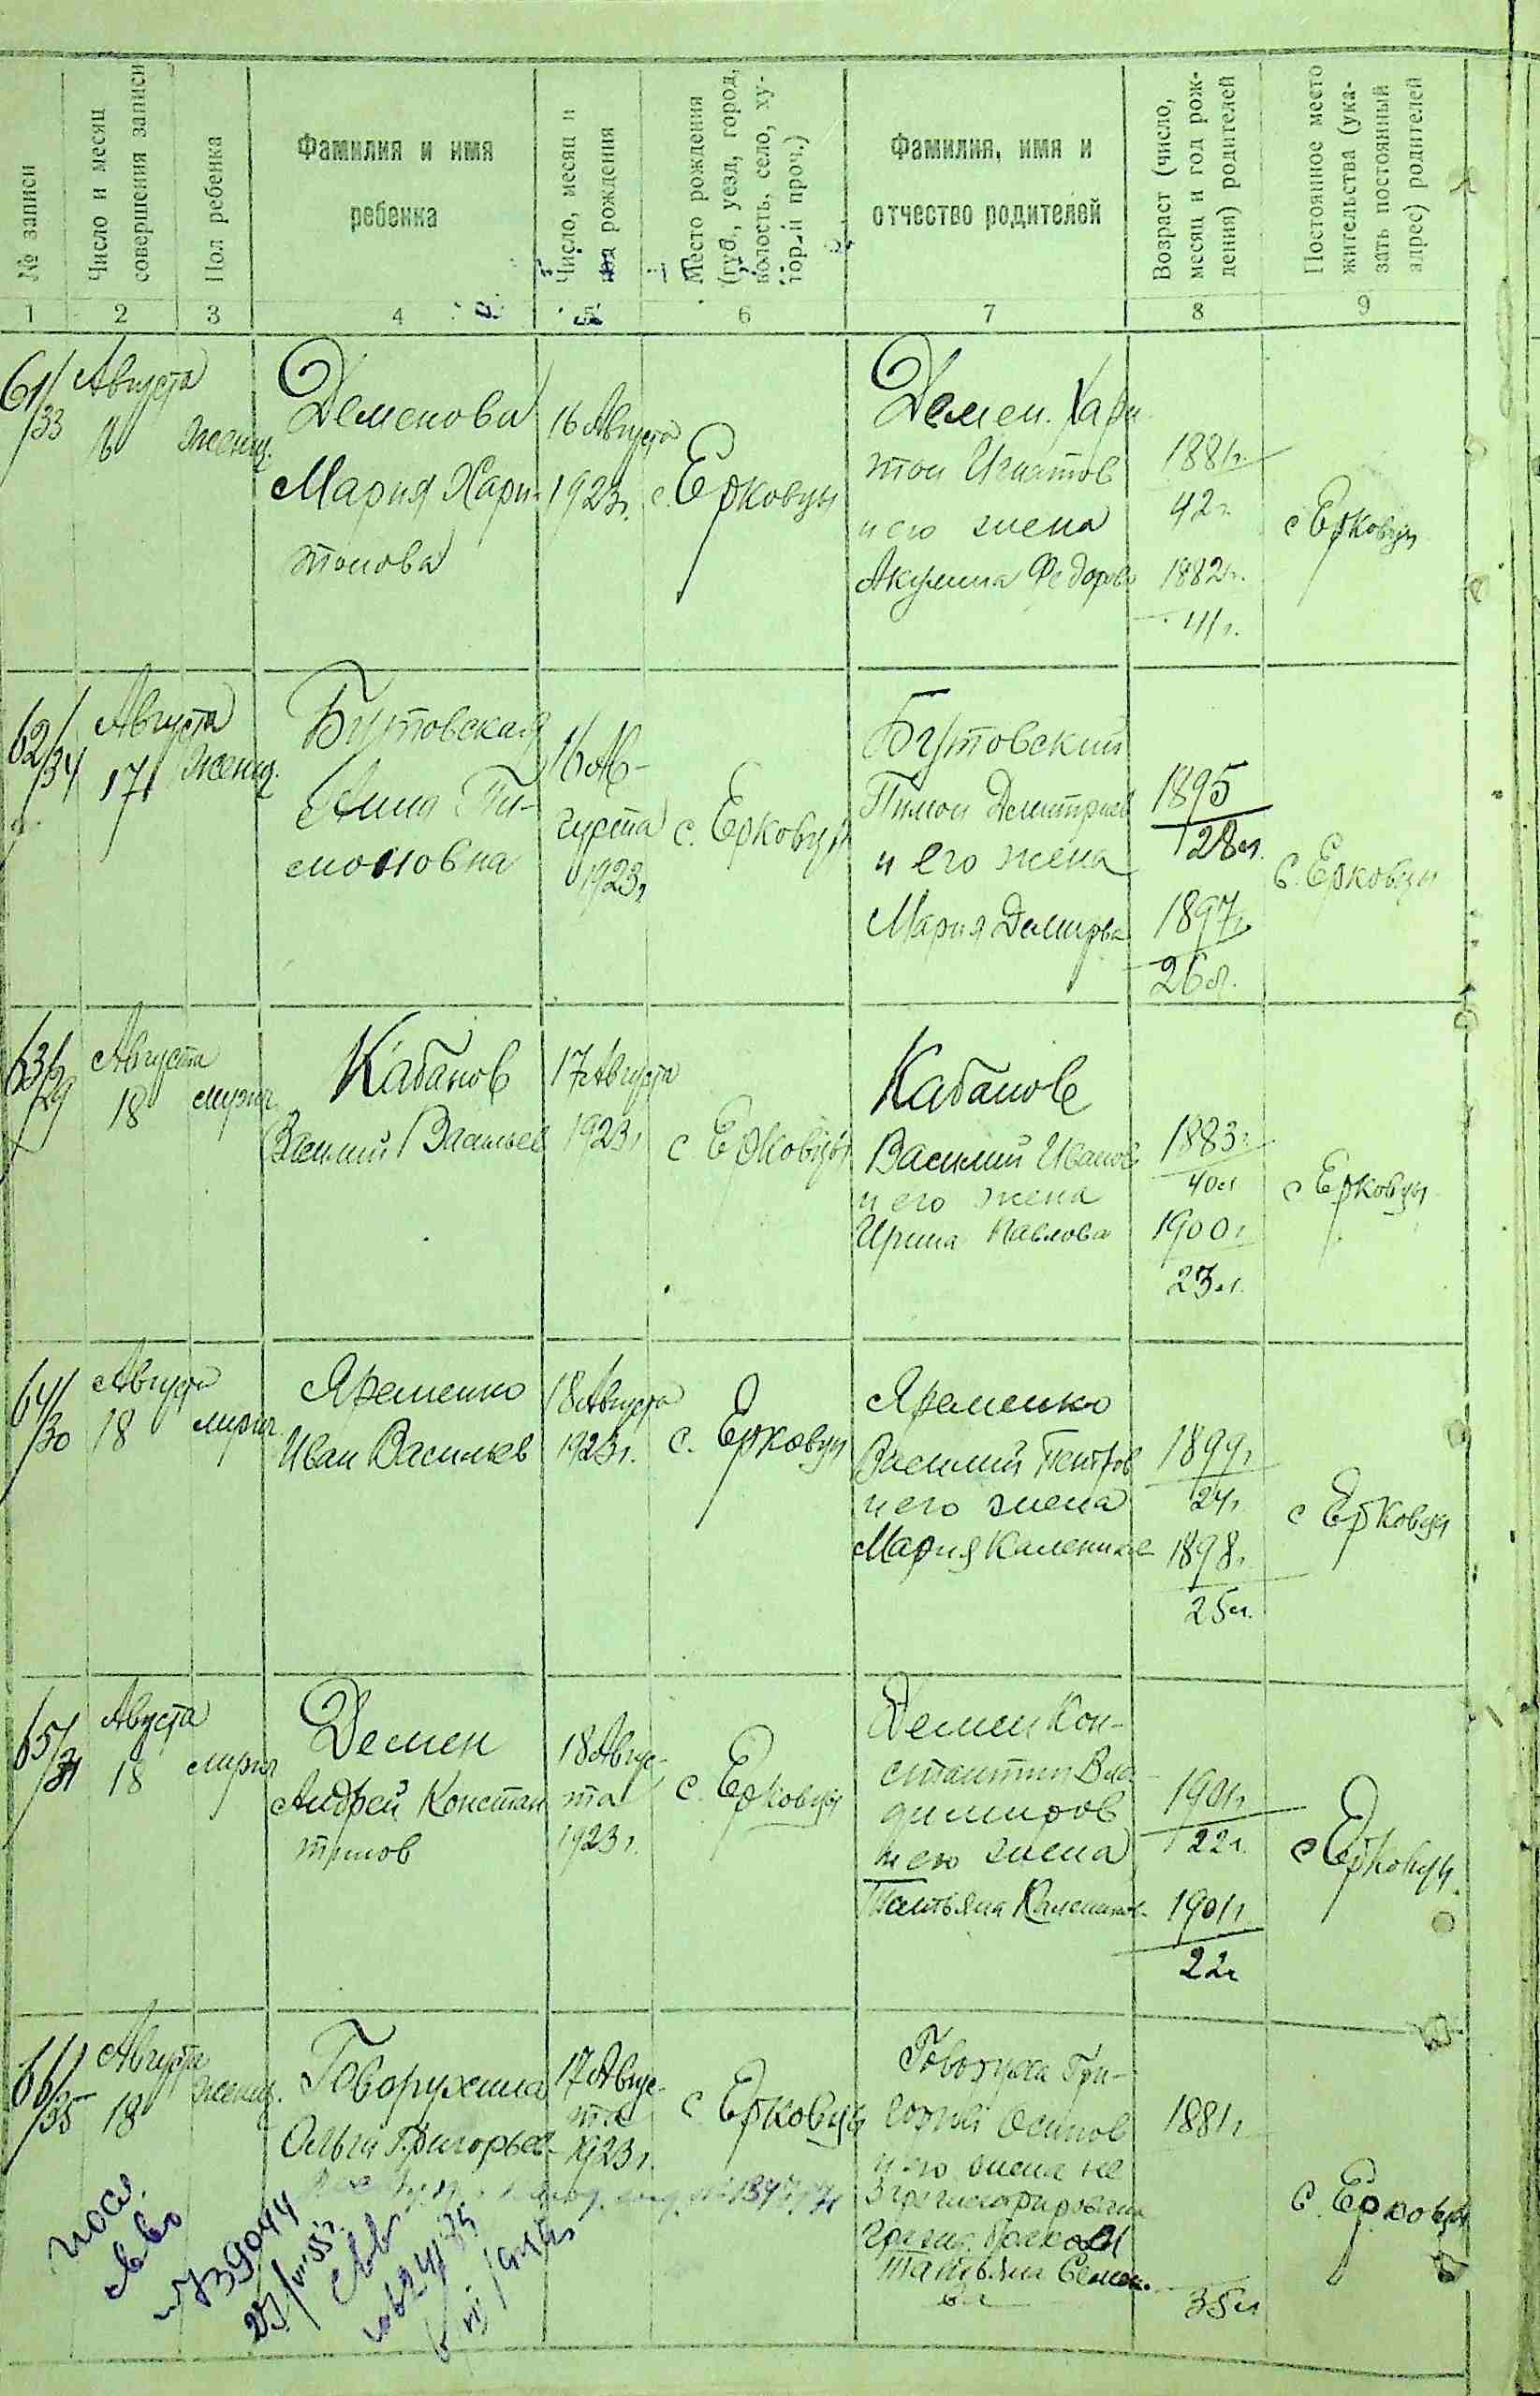 № записи
Число и месяц
совершения записи
Пол ребенка
Фамилия и имя
ребенка
Число, месяц и
год рождения
Место рождения
(губ., уезд, город,
волость, село, ху-
тор и проч.)
Фамилия, имя и
отчество родителей
Возраст (число,
месяц и год рож-
дения) родителей
Постоянное место
жительства (ука-
зать постоянный
адрес) родителей
1 2 3 4 5 6 7 8 9
61/33
Августа
16
женщ.
Деменова
Мария Хари-
тонова
16 Августа
1923г.
с. Ерковцы
Демен. Хари
тон Игнатов
и его жена
Акулина Федоров
1881г.
42г.
1882г.
41г.
с Ерковцы
62/34
Августа
17
женщ.
Бутовская
Анна Пи-
моновна
16 Ав-
густа
1923г
с. Ерковцы
Бутовский
Пимон Дмитриев
и его жена
Мария
1895
28л.
1897г
26л.
с. Ерковцы
63/29
Августа
18
мужч.
Кабанов
Василий Васильев
17 Августа
1923г
с Ерковцы
Кабанов
Василий Иванов
и его жена
Ирина Павлова
1883г
40л
1900г
23л.
с Ерковцы
64/30
Августа
18
мужч.
Яременко
Иван Васильев
18 Августа
1923г.
с. Ерковцы
Яременко
Василий Петров
и его жена
Мария
1899г
24г.
1898г.
25л.
с Ерковцы
65/31
Августа
18
мужч
Демен
Андрей Констан
тинов
18 Авгус-
та
1923г.
с. Ерковцы
Демен Кон-
стантин Вла-
димиров
и его жена
Татьяна
1901г
22г.
1901г
22г
с Ерковцы.
66/35
Августа
18
женщ.
Говорухина
Ольга Григорьев
17 Авгус-
та
1923г.
с Ерковцы
Говоруха Гри-
горий Осипов
и его жена не
Татьяна Семен.
ва
1881г
35л
с. Ерковцы